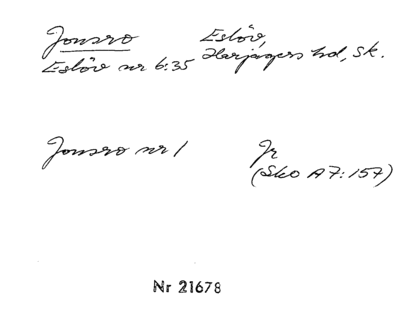 Jonsro Eslöv,
Eslöv nr 6:35 Harjagers hd, Sk.
Jonsro nr 1 Jr
(SkO A7:157)
Nr 21678